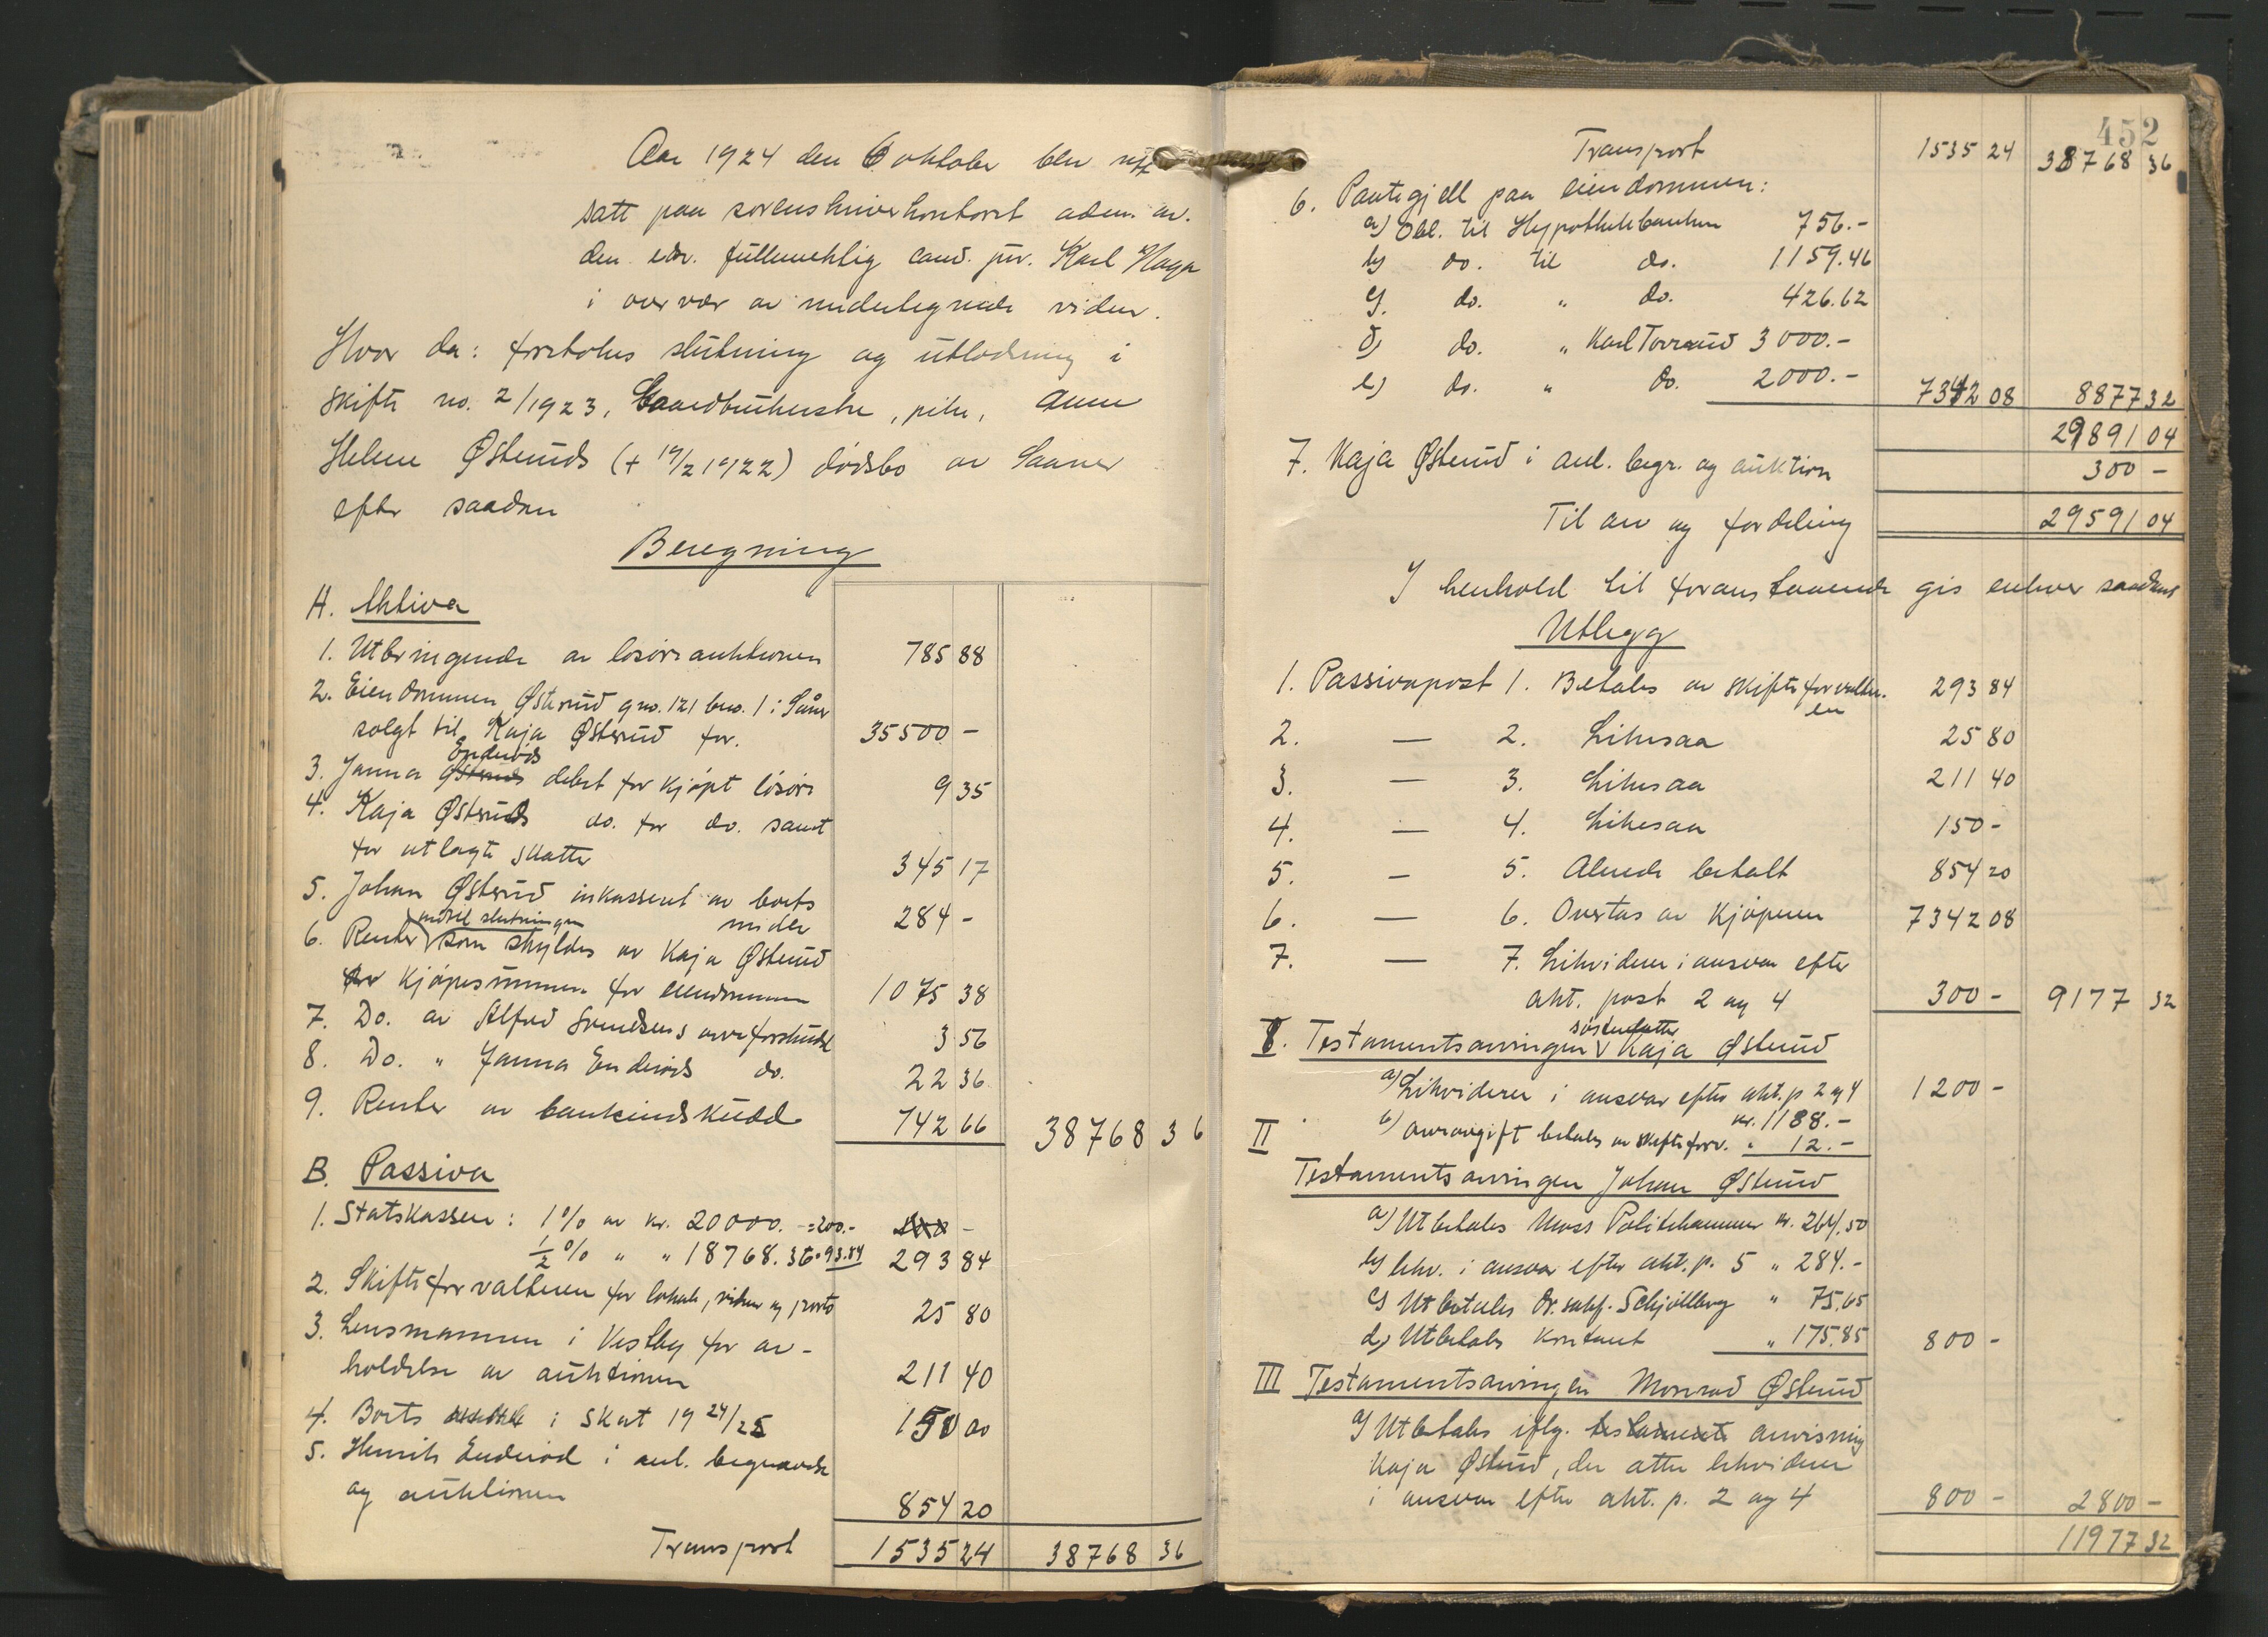 Aar 1924 den 6 oktober blev rett
satt paa sorenskriverkontoret adm. av.
den edsv. fullmektig cand. jur. Karl Haga
i overvær av undertegnede vidner.
Hvor da: foretokes slutning og utlodning i
skifte no. 2/1923, Gaardbrukerske, pike, Anne
Helene Østeruds (+ 19/2 1922) dødsbo av Saaner
efter saadan
Beregning
A. Aktiva
1. Utbringende av løsøreauktionen 785 88
2. Eiendommen Østerud gno. 121 bno. 1 i Såner
solgt til Kaja Østerud for. 35500 –
Enderøds
3. Janna Østeruds debet for kjøpt løsøre 9 35
4. Kaja Østeruds do. for do. samt
for utlagte skatter 345 17
5. Johan Østerud inkassert av boets
midler 284 –
indtil slutningen
6. Renter som skyldes av Kaja Østerud
av kjøpesummen for eiendommen 1075 38
7. Do. av Alfred Svendsens arveforskudd 3 56
8. Do. " Janna Enderøds do. 22 36
9. Renter av bankindskudd 742 66 38768 36
B. Passiva
1. Statskassen: 1% av kr. 20000. =200.–
½% " " 18768.36 = 93.84 293 84
2. Skifteforvalteren for lokale, vidner og porto 25 80
3. Lensmannen i Vestby for av-
holdelse av auktionen 211 40
4. Boets i skat 19 24/25 150 00
5. Henrik Enderød i anl. begravelse
og auktionen 854 20
Transport 1535 24 38768 36
452
Transport 1535 24 38768 36
6. Pantegjell paa eiendommen:
a) Obl. til Hypothekbanken 756.–
b) do. til do. 1159.46
c) do. " do. 426.62
d) do. " Karl Torraud 3000.–
e) do. " do. 2000.– 7342 08 8877 32
29891 04
7. Kaja Østerud i anl. begr. og auktion 300 –
Til arv og fordeling 29591 04
I henhold til foranstaaende gis enhver saadant
Utlegg
1. Passivapost 1. Betales av skifteforvalter-
en 293 84
2. — 2. Likesaa 25 80
3. — 3. Likesaa 211 40
4. — 4. Likesaa 150 –
5. — 5. Alerede betalt 854 20
6. — 6. Overtas av kjøperen 7342 08
7. — 7. Likviderer i ansvar efter
akt. post 2 og 4 300 – 9177 32
søsterdatter
I. Testamentsarvingen Kaja Østerud
a) Likviderer i ansvar efter akt. p 2 og 4 1200 –
kr. 1188.–
b) Arveavgift betales av skifteforv. " 12.–
II
Testamentsarvingen Johan Østerud
a) Utbetales Moss Politikammer kr. 264.50
b) likv. i ansvar efter akt. p. 5 " 284.–
c) Utbetales Or. sakf. Schjøllberg " 75.65
d) Utbetales kontant " 175.85 800 –
III Testamentsarvingen Monrad Østerud
a) Utbetales iflg. testamente anvisning
Kaja Østerud, der atter likviderer
i ansvar efter akt. p. 2 og 4 800 – 2800 –
11977 32